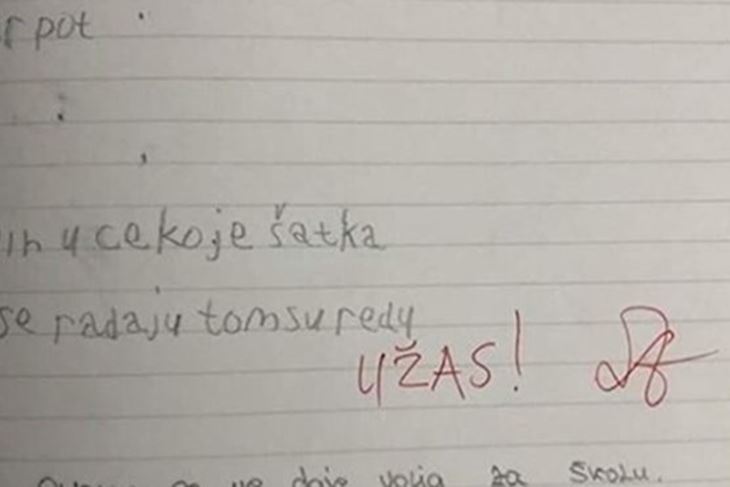 r pot
in ucekoje šatka
se radaju tomsuredu
UŽAS!
za školu.